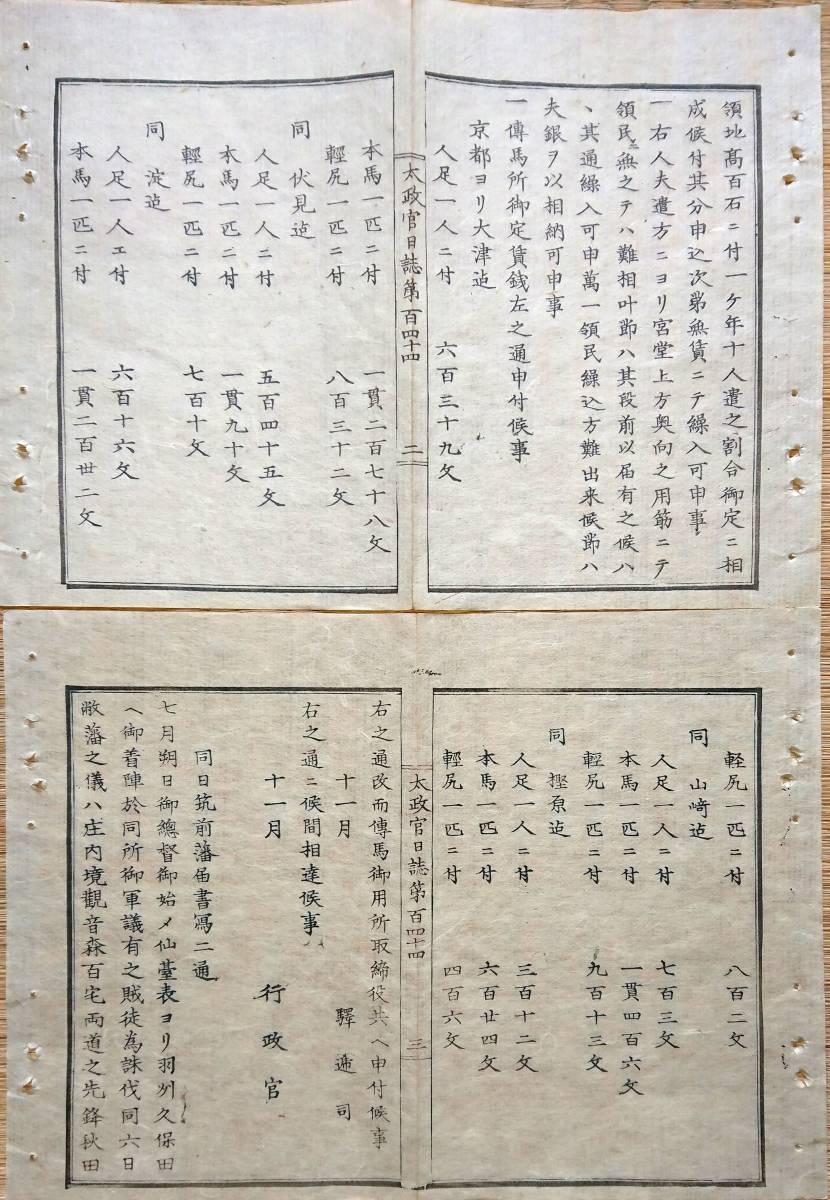 領地高百石ニ付一ケ年十人遣之割合御定ニ相
成候付其分申込次第無賃ニテ繰入可申事
一右人夫遣方ニヨリ宮堂上方奥向之用筋ニテ
領民ニ無之テハ難相叶節ハ其段前以届有之候ハ
、其通繰入可申萬一領民繰込方難出来候節ハ
夫銀ヲ以相納可申事
一傳馬所御定賃銭左之通申付候事
京都ヨリ大津迠
人足一人ニ付 六百三十九文
太政官日誌第百四十四 二
本馬一匹ニ付 一貫二百七十八文
輕尻一匹ニ付 八百三十二文
同 伏見迠
人足一人ニ付 五百四十五文
本馬一匹ニ付 一貫九十文
輕尻一匹ニ付 七百十文
同 淀迠
人足一人エ付 六百十六文
本馬一匹ニ付 一貫二百丗二文
輕尻一匹ニ付 八百二文
同 山﨑迠
人足一人ニ付 七百三文
本馬一匹ニ付 一貫四百六文
輕尻一匹ニ付 九百十三文
同 樫原迠
人足一人ニ付 三百十二文
本馬一匹ニ付 六百廿四文
輕尻一匹ニ付 四百六文
太政官日誌第百四十四 三
右之通改而傳馬御用所取締役共ヘ申付候事
十一月 驛遞司
右之通ニ候間相達候事
十一月 行政官
同日筑前藩届書寫二通
七月朔日御總督御始メ仙臺表ヨリ羽州久保田
ヘ御着陣於同所御軍議有之賊徒為誅伐同六日
敝藩之儀ハ庄内境觀音森百宅両道之先鋒秋田